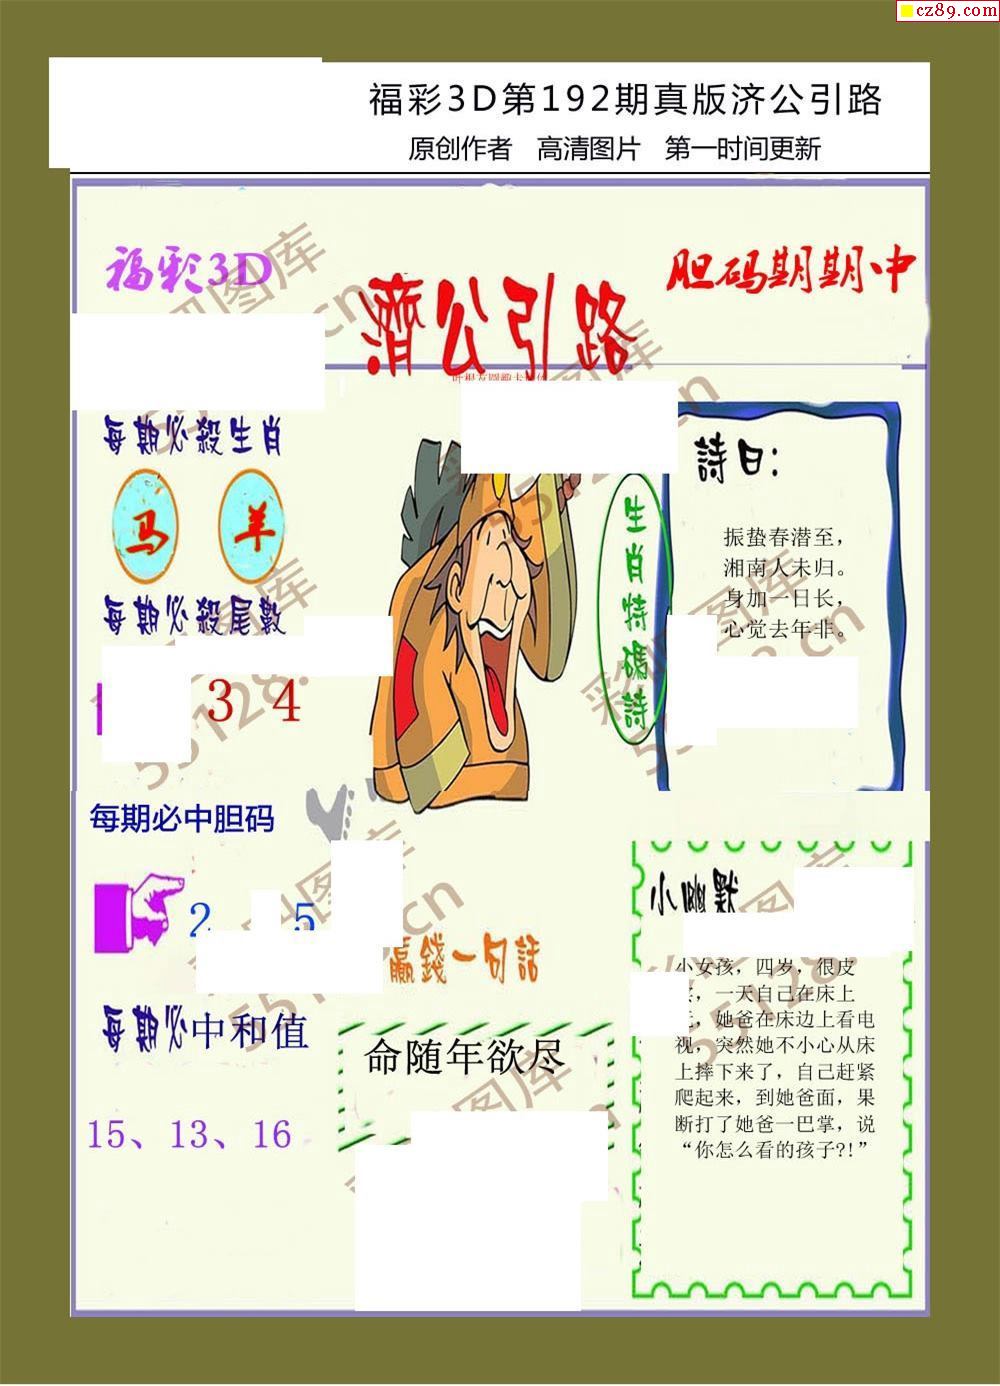 cz89.com
福彩3D第192期真版济公引路
原创作者 高清图片 第一时间更新
福彩3D
濟公引路
胆码期期中
每期必殺生肖
马 羊
每期必殺尾數
3 4
每期必中胆码
2 5
每期必中和值
15、13、16
生肖特碼詩
詩曰：
振蛰春潜至，
湘南人未归。
身加一日长，
心觉去年非。
赢錢一句話
命随年欲尽
小幽默
小女孩，四岁，很皮
，一天自己在床上
，她爸在床边上看电
视，突然她不小心从床
上摔下来了，自己赶紧
爬起来，到她爸面，果
断打了她爸一巴掌，说
“你怎么看的孩子?!”
彩吧图库
55128.cn